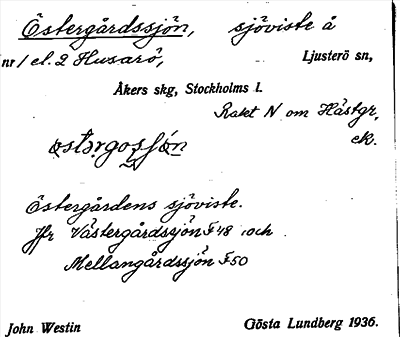 Östergårdssjön, sjöviste å
nr 1 el. 2 Husarö, Ljusterö sn,
Åkers skg, Stockholms l.
Rakt N om Hästgr,
ek.
Östergårdens sjöviste.
Jfr Västergårdssjön F48 och
Mellangårdssjön F50
John Westin Gösta Lundberg 1936.